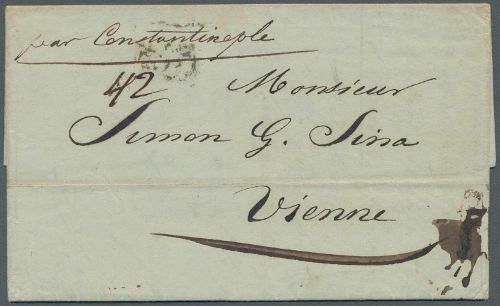 par Constantinople
42 Monsieur
Simon G. Sina
Vienne